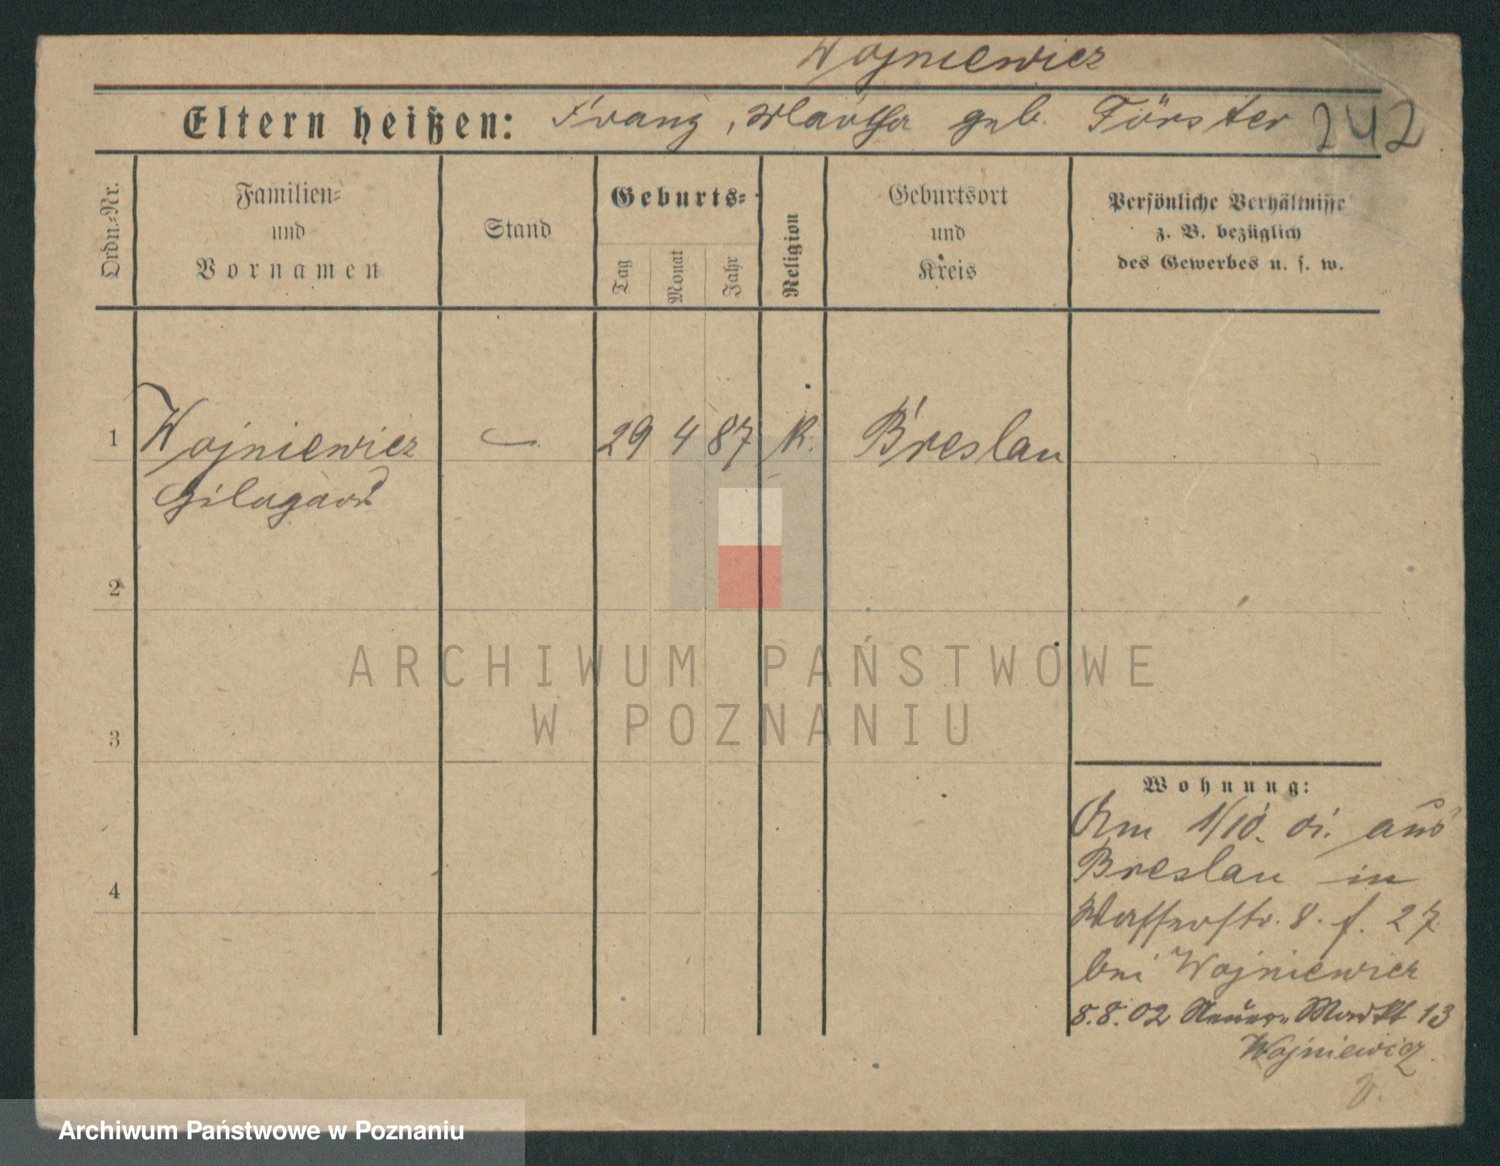 Wojniewicz
Eltern heißen: Franz, Martha geb. Förster 242
Ordn.-Nr.
Familien-
und
Vornamen
Stand
Geburts-
Tag
Monat
Jahr
Religion
Geburtsort
und
Kreis
Persönliche Verhältnisse
z. B. bezüglich
des Gewerbes u. s. w.
1 Wojniewicz — 29 4 87 K. Breslau
2
3
4
ARCHIWUM PAŃSTWOWE
W POZNANIU
Wohnung:
Am 1/10. 01. aus
Breslau in
Wasserstr. 8. f. 27
bei Wojniewicz
8.8.02 Neuer-Markt 13
Wojniewicz
Archiwum Państwowe w Poznaniu